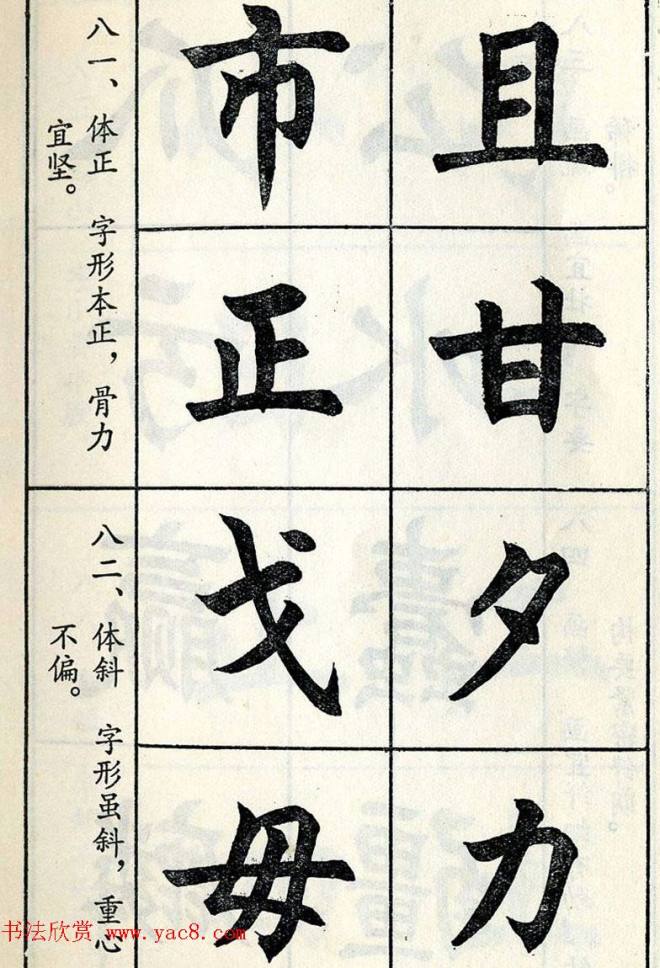 且
甘
市
正
八一、体正　字形本正，骨力
宜坚。
夕
力
戈
毋
八二、体斜　字形虽斜，重心
不偏。
书法欣赏 www.yac8.com